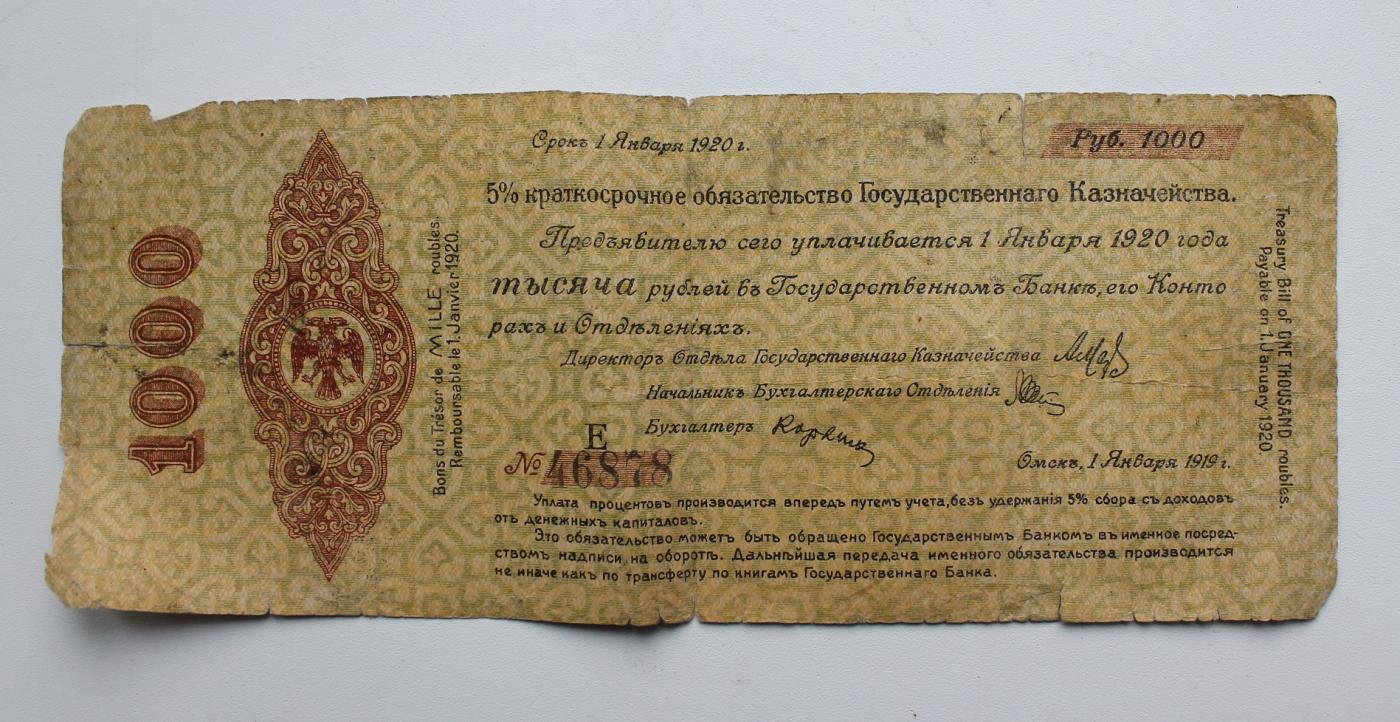 1000
Bons du Trésor de MILLE roubles.
Remboursable le 1. Janvier 1920.
Срокъ 1 Января 1920 г.
Руб. 1000
5% краткосрочное обязательство Государственнаго Казначейства.
Предъявителю сего уплачивается 1 Января 1920 года
тысяча рублей въ Государственномъ Банкѣ, его Конто
рахъ и Отдѣленіяхъ.
Директоръ Отдѣла Государственнаго Казначейства
Начальникъ Бухгалтерскаго Отдѣленія
Бухгалтеръ
Е
№ 46878
Омскъ, 1 Января 1919 г.
Уплата процентовъ производится впередъ путемъ учета, безъ удержанія 5% сбора съ доходовъ
отъ денежныхъ капиталовъ.
Это обязательство можетъ быть обращено Государственнымъ Банкомъ въ именное посред-
ствомъ надписи на оборотѣ. Дальнѣйшая передача именного обязательства производится
не иначе какъ по трансферту по книгамъ Государственнаго Банка.
Treasury Bill of ONE THOUSAND roubles.
Payable on 1. January 1920.